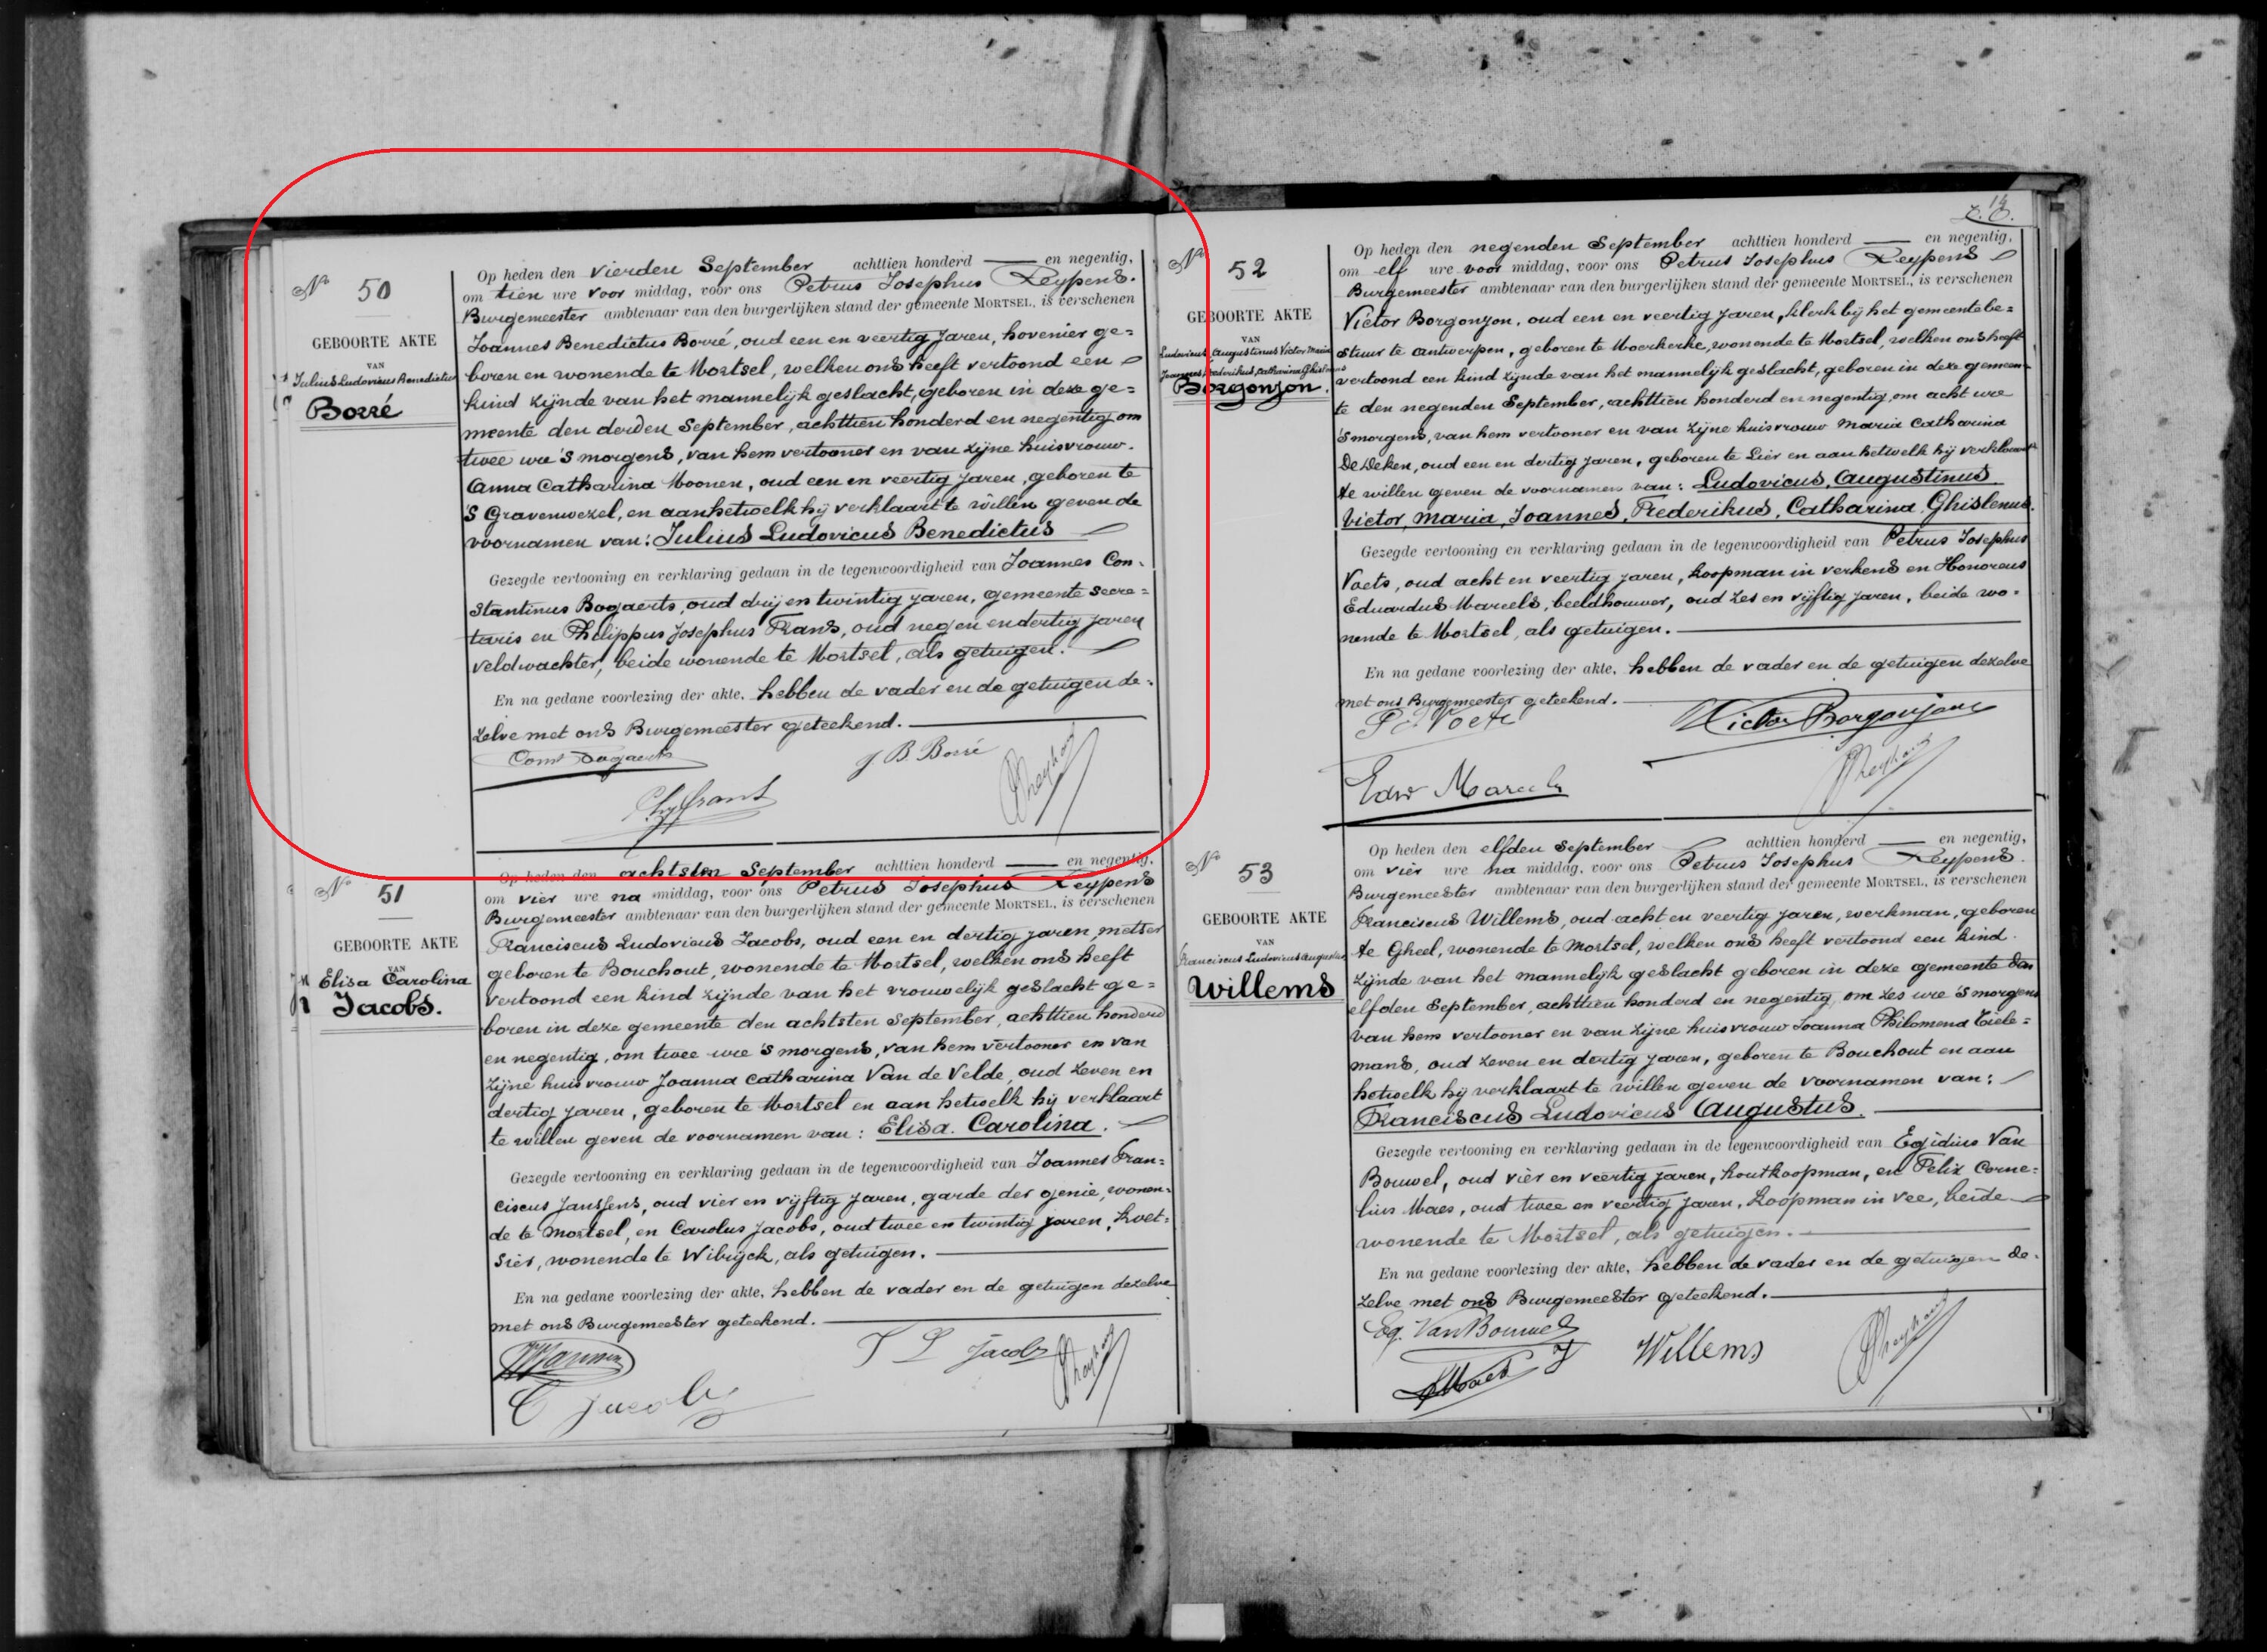 Nº 50
GEBOORTE AKTE
VAN
Julius Ludovicus Benedictus
Borré
Op heden den vierden September achttien honderd — en negentig,
om tien ure voor middag, voor ons Petrus Josephus Reypens.
Burgemeester ambtenaar van den burgerlijken stand der gemeente MORTSEL, is verschenen
Joannes Benedictus Borré, oud een en veertig jaren, hovenier ge=
boren en wonende te Mortsel, welken ons heeft vertoond een
kind zijnde van het mannelijk geslacht, geboren in deze ge=
meente den derden September, achttien honderd en negentig om
twee ure 's morgens, van hem vertooner en van zijne huisvrouw.
Anna Catharina Moonen, oud een en veertig jaren, geboren te
'S Gravenwezel, en aan hetwelk hij verklaart te willen geven de
voornamen van: Julius Ludovicus Benedictus
Gezegde vertooning en verklaring gedaan in de tegenwoordigheid van Joannes Con=
stantinus Bogaerts, oud drij en twintig jaren, gemeente secre=
taris en Philippus Josephus Frans, oud negen en dertig jaren
veldwachter, beide wonende te Mortsel, als getuigen.
En na gedane voorlezing der akte, hebben de vader en de getuigen de=
zelve met ons Burgemeester geteekend.
Const Bogaerts
J B Borré
Nº 51
GEBOORTE AKTE
VAN
Elisa Carolina
Jacobs.
Op heden den achtsten September achttien honderd — en negentig,
om vier ure na middag, voor ons Petrus Josephus Reypens
Burgemeester ambtenaar van den burgerlijken stand der gemeente MORTSEL, is verschenen
Franciscus Ludovicus Jacobs, oud een en dertig jaren, metser
geboren te Bouchout, wonende te Mortsel, welken ons heeft
vertoond een kind zijnde van het vrouwelijk geslacht ge=
boren in deze gemeente den achtsten September, achttien honderd
en negentig, om twee ure 's morgens, van hem vertooner en van
zijne huisvrouw Joanna Catharina Van de Velde, oud zeven en
dertig jaren, geboren te Mortsel en aan hetwelk hij verklaart
te willen geven de voornamen van: Elisa Carolina.
Gezegde vertooning en verklaring gedaan in de tegenwoordigheid van Joannes Fran=
ciscus Janssens, oud vier en vijftig jaren, garde der genie, wonen=
de te Mortsel, en Carolus Jacobs, oud twee en twintig jaren, koet=
sier, wonende te Wilrijck, als getuigen.
En na gedane voorlezing der akte, hebben de vader en de getuigen dezelve
met ons Burgemeester geteekend.
F L Jacobs
C Jacobs
Nº 52
GEBOORTE AKTE
VAN
Ludovicus Augustinus Victor Maria
Joannes Frederikus, Catharina Ghislenus
Borgonjon.
Op heden den negenden September achttien honderd — en negentig,
om elf ure voor middag, voor ons Petrus Josephus Reypens
Burgemeester ambtenaar van den burgerlijken stand der gemeente MORTSEL, is verschenen
Victor Borgonjon, oud een en veertig jaren, klerk bij het gemeentebe=
stuur te Antwerpen, geboren te Moerkerke, wonende te Mortsel, welken ons heeft
vertoond een kind zijnde van het mannelijk geslacht, geboren in deze gemeen=
te den negenden September, achttien honderd en negentig, om acht ure
's morgens, van hem vertooner en van zijne huisvrouw Maria Catharina
De Deken, oud een en dertig jaren, geboren te Lier en aan hetwelk hij verklaart
te willen geven de voornamen van: Ludovicus, Augustinus
Victor, Maria, Joannes, Frederikus, Catharina, Ghislenus.
Gezegde vertooning en verklaring gedaan in de tegenwoordigheid van Petrus Josephus
Voets, oud acht en veertig jaren, koopman in verkens en Honoreus
Eduardus Marcels, beeldhouwer, oud zes en vijftig jaren, beide wo=
nende te Mortsel, als getuigen.
En na gedane voorlezing der akte, hebben de vader en de getuigen dezelve
met ons Burgemeester geteekend.
Victor Borgonjon
Nº 53
GEBOORTE AKTE
VAN
Franciscus Ludovicus Augustus
Willems
Op heden den elfden September achttien honderd — en negentig,
om vier ure na middag, voor ons Petrus Josephus Reypens.
Burgemeester ambtenaar van den burgerlijken stand der gemeente MORTSEL, is verschenen
Franciscus Willems, oud acht en veertig jaren, werkman, geboren
te Gheel, wonende te Mortsel, welken ons heeft vertoond een kind
zijnde van het mannelijk geslacht geboren in deze gemeente den
elfden September, achttien honderd en negentig, om zes ure 's morgens
van hem vertooner en van zijne huisvrouw Joanna Philomena Tiele=
mans, oud zeven en dertig jaren, geboren te Bouchout en aan
hetwelk hij verklaart te willen geven de voornamen van:
Franciscus Ludovicus Augustus.
Gezegde vertooning en verklaring gedaan in de tegenwoordigheid van Egidius Van
Bouwel, oud vier en veertig jaren, houtkoopman, en Felix Corne=
lius Maes, oud twee en veertig jaren, koopman in vee, beide
wonende te Mortsel, als getuigen.
En na gedane voorlezing der akte, hebben de vader en de getuigen de=
zelve met ons Burgemeester geteekend.
Eg. Van Bouwel
Willems